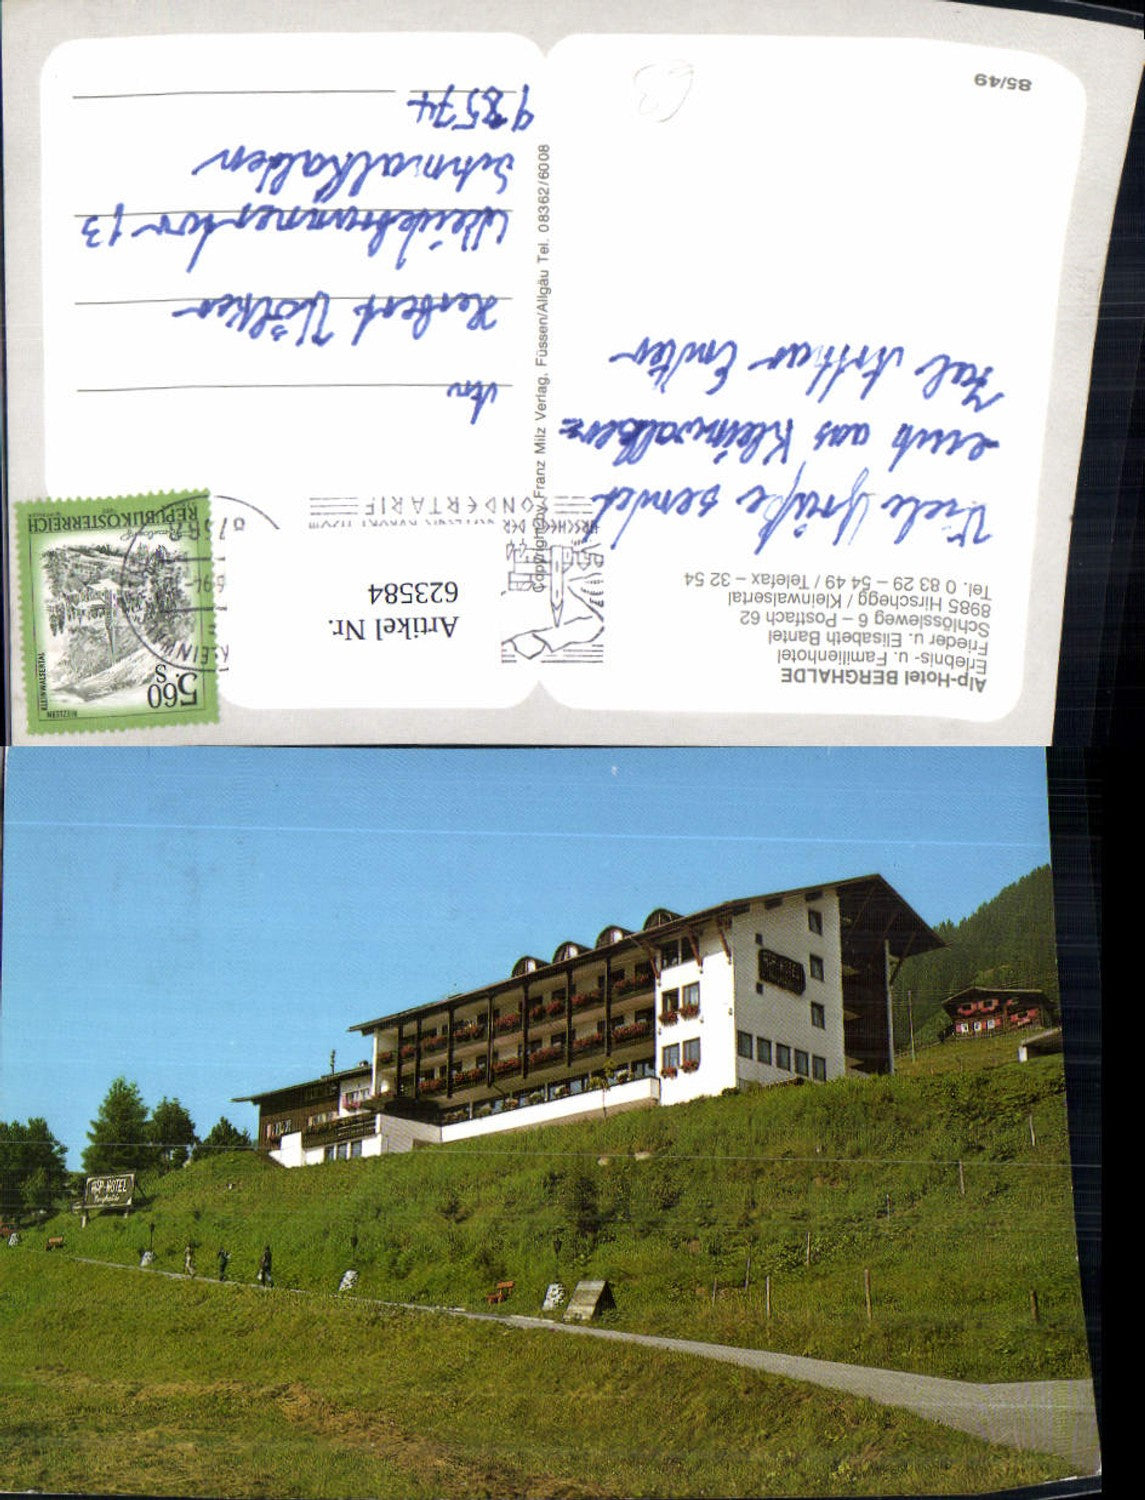 Alp-Hotel BERGHALDE
Erlebnis- u. Familienhotel
Frieder u. Elisabeth Bantel
Schlössleweg 6 – Postfach 62
8985 Hirschegg / Kleinwalsertal
Tel. 0 83 29 – 54 49 / Telefax – 32 54
Viele Grüße sendet
euch aus Kleinwalser=
tal Arthur Endter
85/49
Copyright by Franz Milz Verlag, Füssen/Allgäu Tel. 08362/6008
Artikel Nr.
623584
SONDERTARIF
RIEZLERN
KLEINWALSERTAL
5.60
S
REPUBLIK ÖSTERREICH
KLEINW
An
Herbert Völker
Weidebrunnertor 13
Schmalkalden
98574
ALP-HOTEL
Berghalde